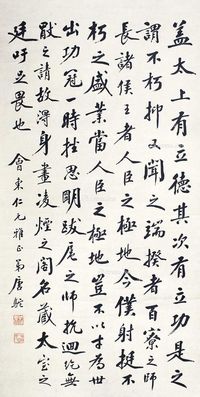 蓋太上有立德其次有立功是之
謂不朽抑又聞之端揆者百寮之師
長諸侯王者人臣之極地今僕射挺不
朽之盛業當人臣之極地豈不以才為世
出功冠一時挫思明跋扈之師抗迴紇無
厭之請故得身畫凌煙之閣名藏太室之
廷吁足畏也 會東仁兄雅正 弟唐駝